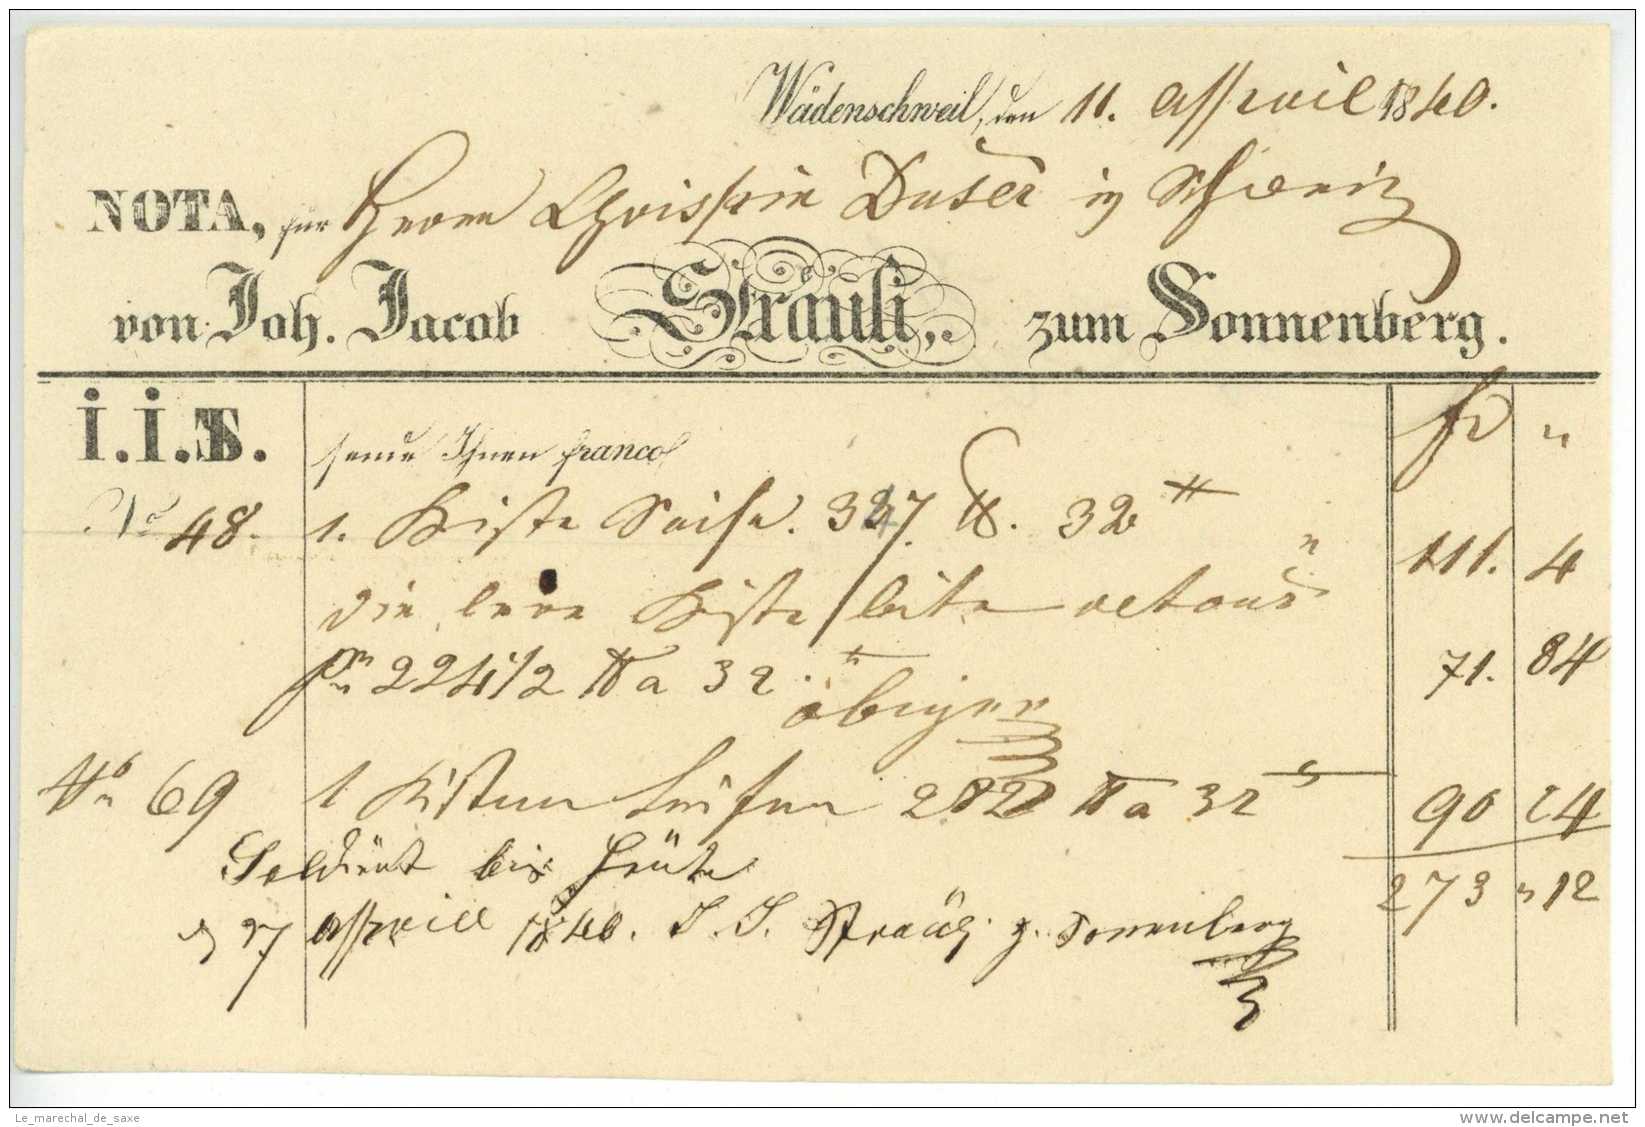 Wädenschweil, den 11. Appril 1840.
NOTA, für Herrn Chrisppin Duser in Schweiz
von Joh. Jacob Sträuli, zum Sonnenberg.
I.I.S. sende Ihnen franco fr
No 48. 1. Kiste Seife. 347 ℔. 32 111. 4
die lere Kiste bite retour
224 1/2 ℔ a 32 71. 84
obiger
No 69 1 Kisten Seifen 282 ℔ a 32 90 24
273 12
Saldiert bis heüte
d 27 Appriell 1840. J. J. Sträuli z. Sonnenberg
Le_marechal_de_saxe
www.delcampe.net